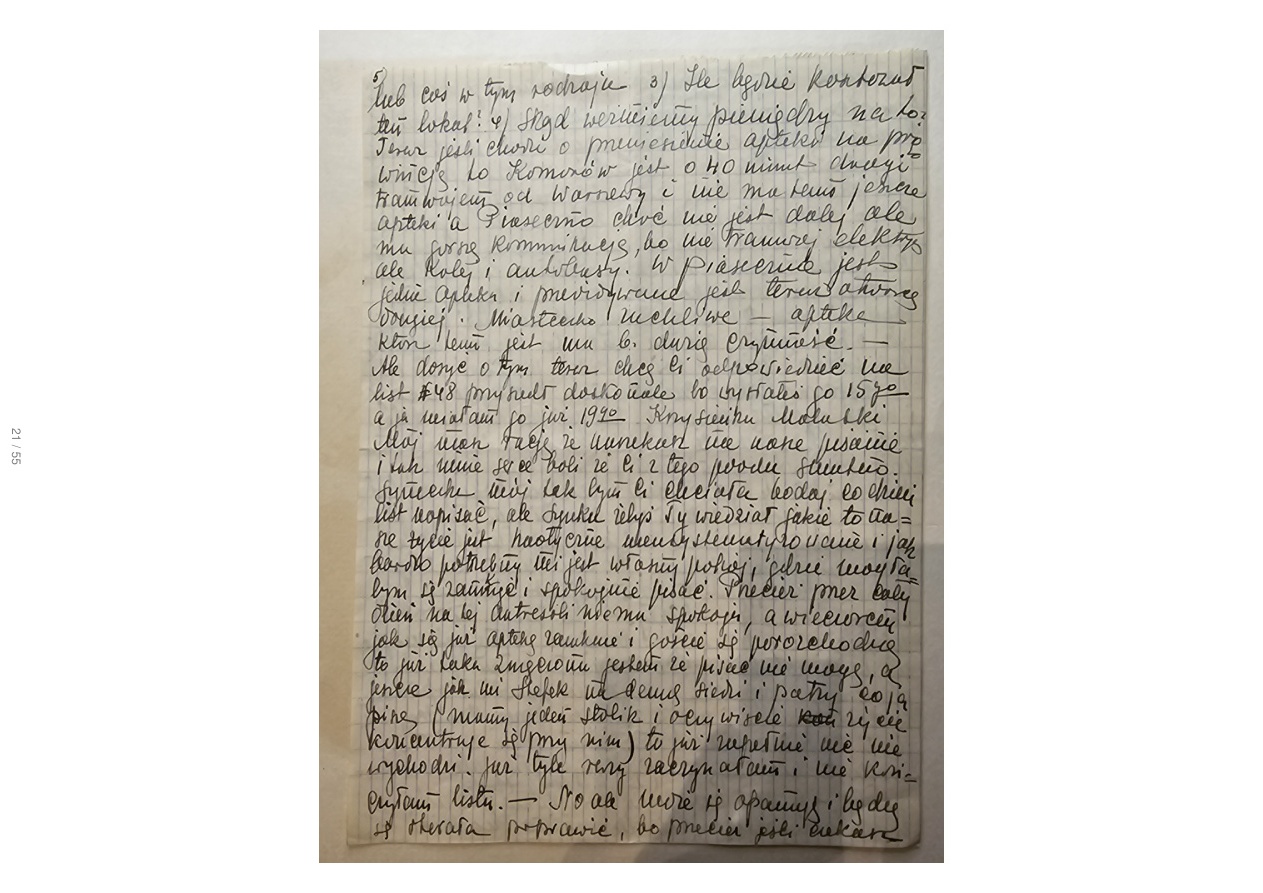 5)
lub coś w tym rodzaju 3) Ile będzie kosztował
ten lokal? 4) Skąd weźmiemy pieniędzy na to?
Teraz jeśli chodzi o przeniesienie apteki na pro
wincję to Komorów jest o 40 minut drogi
tramwajem od Warszawy i nie ma tam jeszcze
apteki a Piaseczno choć nie jest dalej ale
ma gorszą komunikację, bo nie tramwaj elektr
ale kolej i autobusy. W Piasecznie jest
jedna apteka i przewidywane jest teraz otwarcie
drugiej. Miasteczko ruchliwe — apteka
która tam jest ma b. dużą czynność. —
Ale dosyć o tym teraz chcę Ci odpowiedzieć na
list #48 przyszedł doskonale bo wysłałeś go 15go
a ja miałam go już 19go Krzysieńku Malutki
Mój masz rację że narzekasz na nasze pisanie
i tak mnie serce boli że Ci z tego powodu smutno.
Syneczku mój tak bym Ci chciała bodaj codzień
list napisać, ale Synku żebyś Ty wiedział jakie to na=
sze życie jest chaotyczne nieusystematyzowane i jak
bardzo potrzebny mi jest własny pokój, gdzie mogła=
bym się zamknąć i spokojnie pisać. Przecież przez cały
dzień na tej antresoli niema spokoju, a wieczorem
jak się już aptekę zamknie i goście się porozchodzą
to już taka zmęczona jestem że pisać nie mogę, a
jeszcze jak mi Stefek na demną siedzi i patrzy co ja
piszę (mamy jeden stolik i oczywiście życie
koncentruje się przy nim) to już zupełnie nic nie
wychodzi. Już tyle razy zaczynałam i nie koń=
czyłam listu. — No ale może się opamiętę i będę
się starała poprawić, bo przecież jeśli czekasz